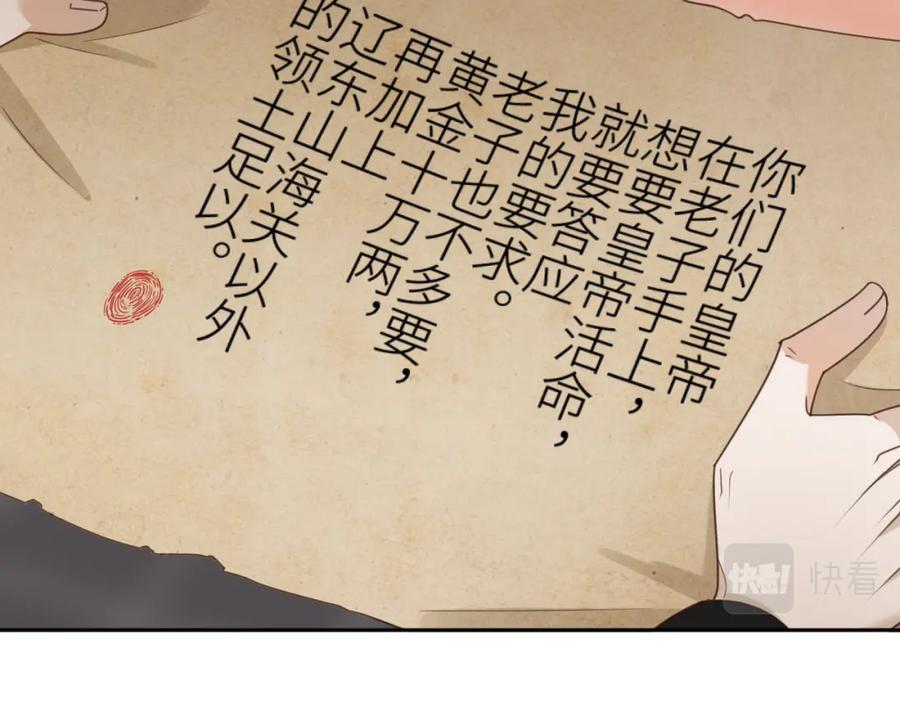 你们的皇帝
在老子手上,
想要皇帝活命,
就要答应
我的要求。
老子也不多要,
黄金十万两,
再加上
辽东山海关以外
的领土足以。
快看! 快看